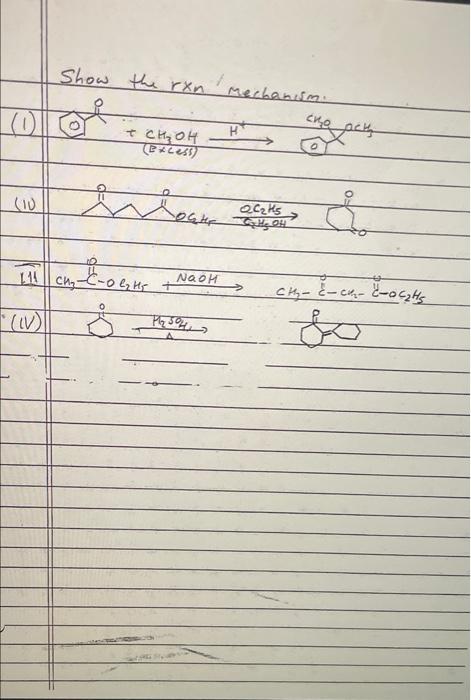 Show the rxn mechanism.
(I) O + CH3OH (Excess) H+ → CH3O OCH3
(II) O O OC2H5 OC2H5 C2H5OH → O O
III CH3-C-OC2H5 + NaOH → CH3-C-CH2-C-OC2H5
(IV) O H2SO4, Δ → O